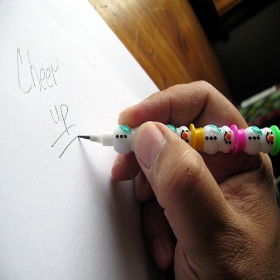 Cheer
up